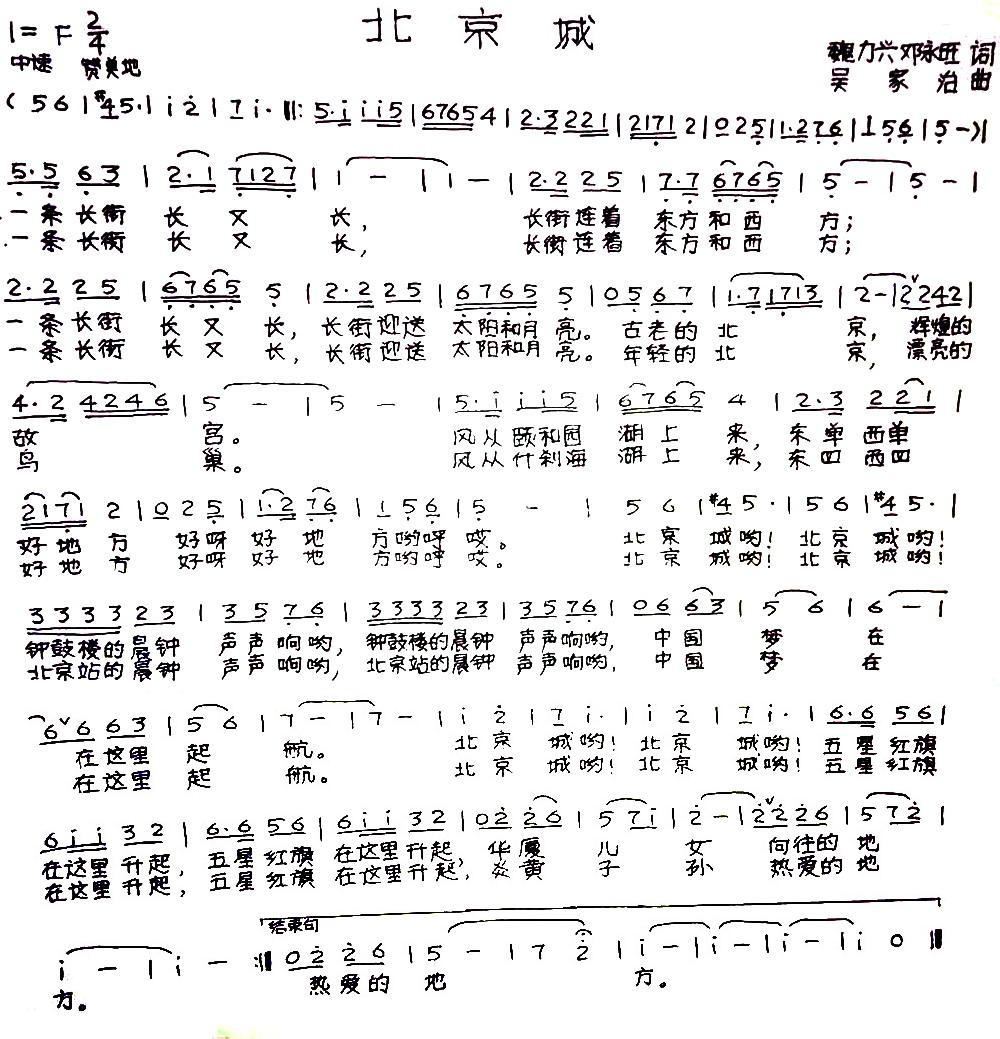 北京城
1=F 2/4
中速 赞美地
魏力兴 邓永旺 词
吴家治 曲
( 5 6 | #4 5· | i 2 | 7 i· |: 5·i i i 5 | 6765 4 | 2·3 221 | 2171 2 | 0 2 5 | 1·2 7 6 | 1 5 6 | 5 - ) |
5·5 6 3 | 2·1 7127 | 1 - | 1 - | 2·2 2 5 | 7·7 6765 | 5 - | 5 - |
一条长街 长又长, 长街连着 东方和西方;
一条长街 长又长, 长街连着 东方和西方;
2·2 2 5 | 6765 5 | 2·2 2 5 | 6765 5 | 0 5 6 7 | 1·71713 | 2 - | 2 2242 |
一条长街 长又长, 长街迎送 太阳和月亮。 古老的北京, 辉煌的
一条长街 长又长, 长街迎送 太阳和月亮。 年轻的北京, 漂亮的
4·2 4246 | 5 - | 5 - | 5·i i i 5 | 6765 4 | 2·3 2 2 1 |
故宫。 风从颐和园 湖上来, 东单西单
鸟巢。 风从什刹海 湖上来, 东四西四
2171 2 | 0 2 5 | 1·2 7 6 | 1 5 6 | 5 - | 5 6 | #4 5· | 5 6 | #4 5· |
好地方 好呀好地方哟呼哎。 北京城哟! 北京城哟!
好地方 好呀好地方哟呼哎。 北京城哟! 北京城哟!
3333 2 3 | 3 5 7 6 | 3333 2 3 | 3 5 7 6 | 0 6 6 3 | 5 6 | 6 - |
钟鼓楼的晨钟 声声响哟, 钟鼓楼的晨钟 声声响哟, 中国梦在
北京站的晨钟 声声响哟, 北京站的晨钟 声声响哟, 中国梦在
6 6 6 3 | 5 6 | 7 - | 7 - | i 2 | 7 i· | i 2 | 7 i· | 6·6 5 6 |
在这里起航。 北京城哟! 北京城哟! 五星红旗
在这里起航。 北京城哟! 北京城哟! 五星红旗
6 i i 3 2 | 6·6 5 6 | 6 i i 3 2 | 0 2 2 6 | 5 7 i | 2 - | 2 2 2 6 | 5 7 2 |
在这里升起, 五星红旗 在这里升起, 华厦儿女 向往的地
在这里升起, 五星红旗 在这里升起, 炎黄子孙 热爱的地
结束句
i - | i - :| 0 2 2 6 | 5 - | 7 2 | i - | i - | i - | i 0 ||
方。 热爱的地方。